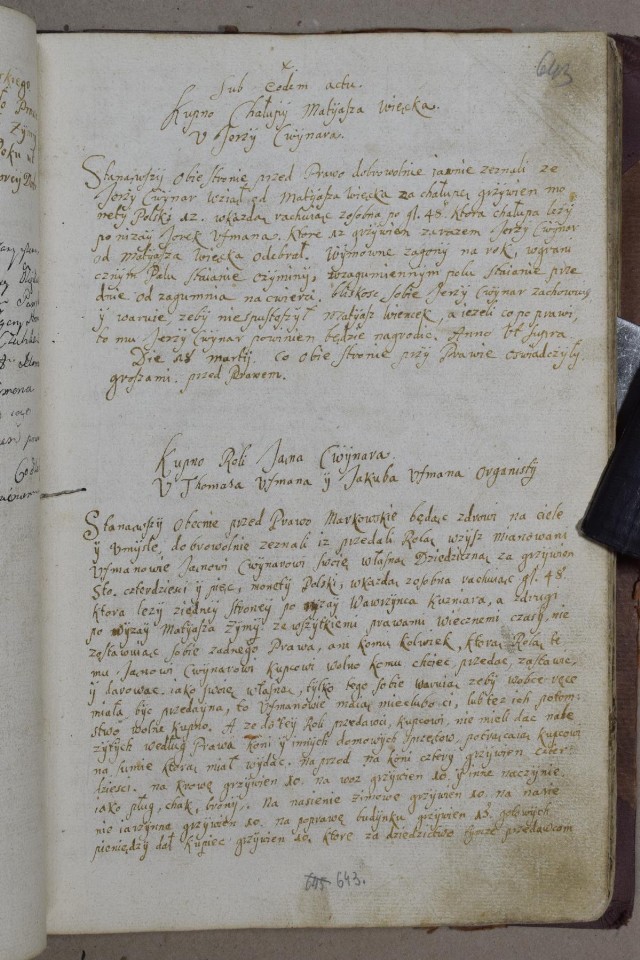 643
Sub Eodem actu.
Kupno Chałupy Matyasza Więcka
U Jerzy Cwynara.
Stanąwszy Obie stronie przed Prawo dobrowolnie iawnie zeznali ze
Jerzy Cwynar wziął od Matyasza Więcka za chałupę grzywien mo
nety Polski 12. w kazdą rachuiąc zosobna po gl. 48. Ktora chałupa lezy
po nizay Jorek Ufmana. Ktore 12 grzywien zarazem Jerzy Cwynar
od Matyasza Więcka odebrał. Wymowne zagony na rok, w grani
cznym Polu staianie ozyminy, w zagumiennym polu staianie prze
dnie od zagumnia na cwierci, bliskosc sobie Jerzy Cwynar zachowuie
y waruie, zeby nie spustoszył Matyasz Wiencek, a iezeli co po prawi,
to mu Jerzy Cwynar powinien będzie nagrodic. Anno ut supra
Die 18 martij. Co obie stronie przy Prawie oswiadczyly
groszami przed Prawem.
Kupno Roli Jana Cwynara.
U Thomasa Ufmana y Jakuba Ufmana Organisty
Stanąwszy Obecnie przed Prawo Markowskie będąc zdrowi na ciele
y Umysle, dobrowolnie zeznali iz przedali Rolą wzysz mianowani
Ufmanowie Janowi Cwynarowi swoię własną Dziedziczną za grzywien
Sto. czterdziesci y pięc, monety Polski, w kazdą zosobna rachuiąc gl. 48
ktora lezy ziedney stroney po nizay Wawrzynca Kuzniara, a zdrugi
po wyzay Matyasza Zymy ze wszytkiemi prawami wiecznemi czasy, nie
zostawuiąc sobie zadnego Prawa, ani komu kolwiek, ktorą Rolą te
mu Janowi Cwynarowi Kupcowi wolno komu chciec przedac, zastawic,
y darowac iako swoię własną, tylko tego sobie waruią zeby w obce ręce
miała byc przedayna, to Ufmanowie maią nieslubo ci, lub tez ich potom
stwo wolne kupno. A ze do tey Roli przedawci, kupcowi, nie mieli dac nale
zytych według Prawa Koni y innych domowych sprzętow, potrącaią kupcowi
na summie ktorą miał wydac. Naprzod na koni cztery grzywien czter
dziesci. na krowę grzywien 10. na woz grzywien 10. y inne naczynie
iako pług, brony. Na nasienie zimowe grzywien 10. na nasie
nie iarzynne grzywien 10. na poprawę budynku grzywien 15. gotowych
pieniędzy dał kupiec grzywien 10. ktore za dziedzictwo tymze przedawcom
643.